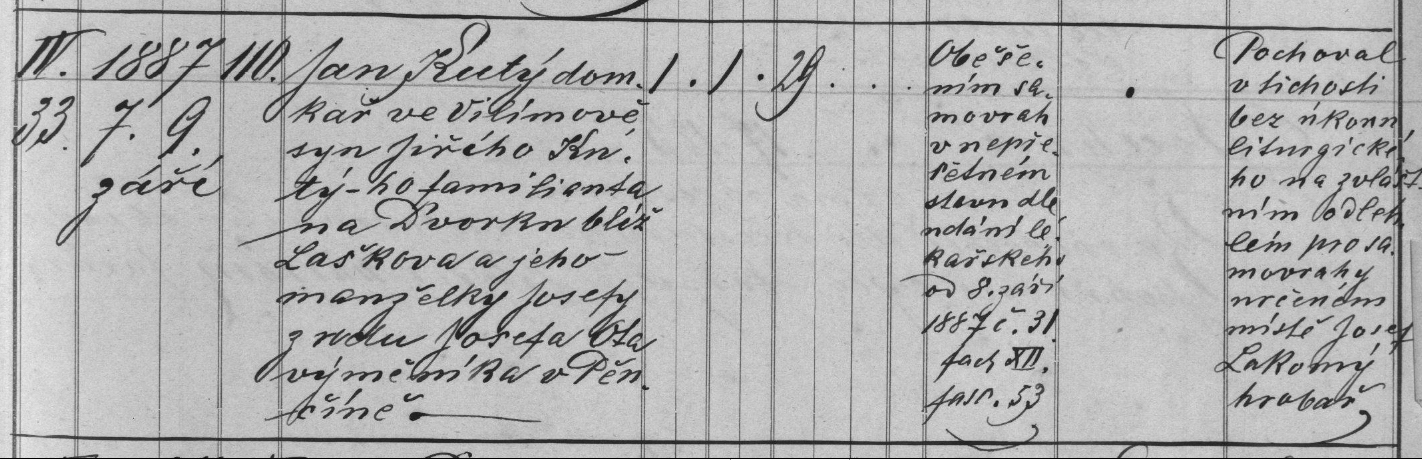 IV. 1887 110. Jan Kutý dom. 1 . 1 . 29 . . .
33. 7. 9.
září
kař ve Vilímově
syn Jiřího Ku.
tý-ho familianta
na Dvorku blíž
Laškova a jeho
manželky Josefy
z rodu Josefa Ota
výměníka v Pěn.
číně.
Oběše.
ním sa.
movrah
v nepříe.
četném
stavu dle
udání lé.
kařského
od 8. září
1887 č. 31
fach XII.
fasc. 53
.
Pochoval
v tichosti
bez úkonu
liturgické.
ho na zvlášt
ním odleh.
lém pro sa.
movrahy
určeném
místě Josef
Lakomý
hrobař